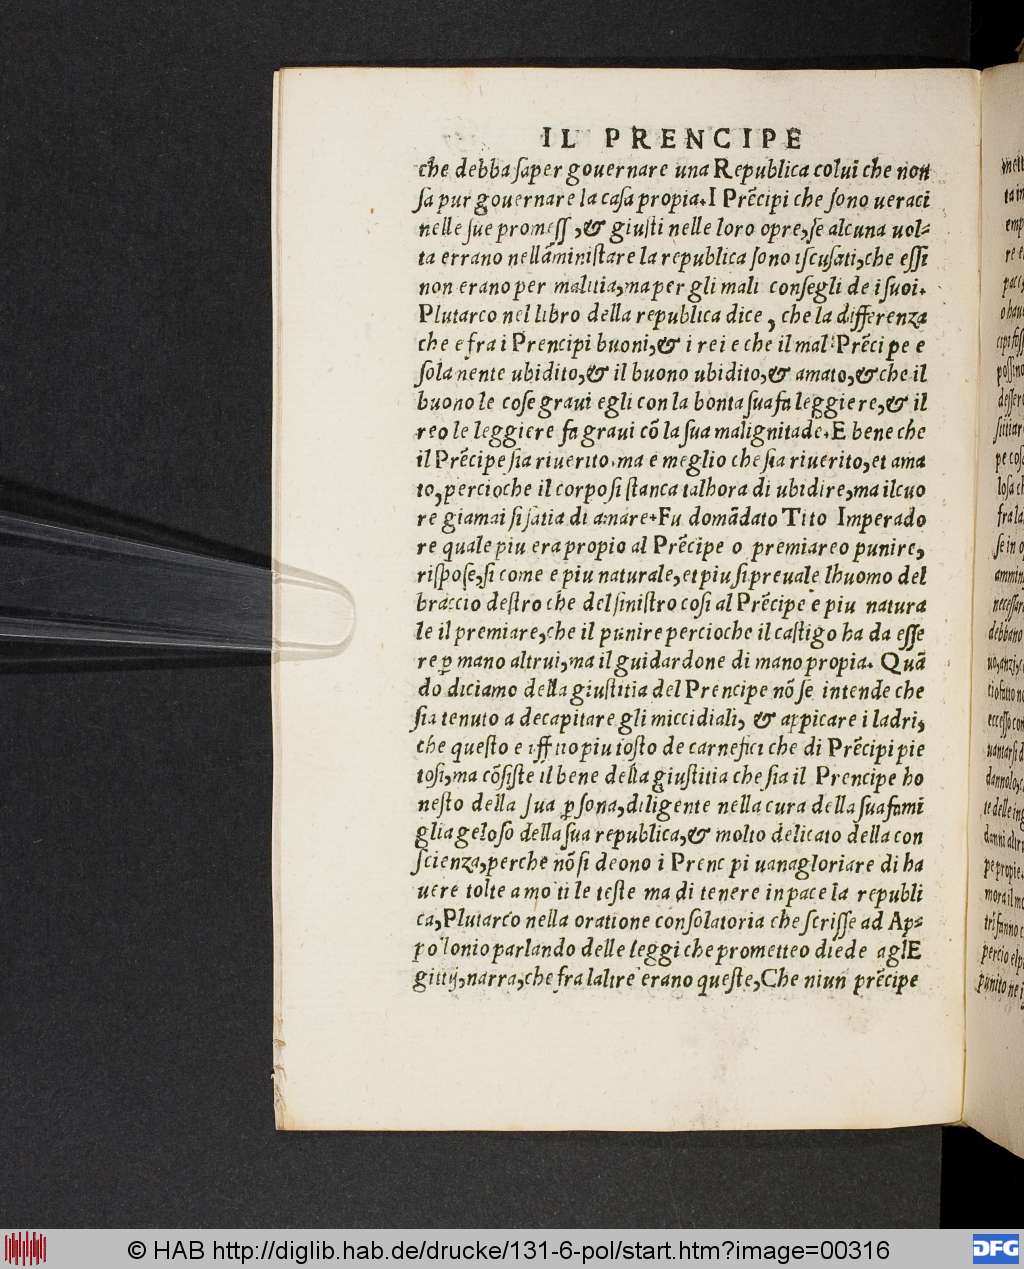 IL PRENCIPE
che debba ſaper gouernare una Republica colui che non
ſa pur gouernare la caſa propia. I Prẽcipi che ſono ueraci
nelle ſue promeſſ, & giuſti nelle loro opre, ſe alcuna uol-
ta errano nell'ãminiſtare la republica ſono iſcuſati, che eſſi
non erano per malitia, ma per gli mali conſegli de i ſuoi.
Plutarco nel libro della republica dice, che la differenza
che e fra i Prencipi buoni, & i rei e che il mal Prẽcipe e
ſolamente ubidito, & il buono ubidito, & amato, & che il
buono le coſe graui egli con la bonta ſua fa leggiere, & il
reo le leggiere fa graui cõ la ſua malignitade. E bene che
il Prẽcipe ſia riuerito, ma e meglio che ſia riuerito, et ama
to, percioche il corpo ſi ſtanca talhora di ubidire, ma il cuo
re giamai ſi ſatia di amare. Fu domãdato Tito Imperado
re quale piu era propio al Prẽcipe o premiare o punire,
riſpoſe, ſi come e piu naturale, et piu ſi preuale lhuomo del
braccio deſtro che del ſiniſtro coſi al Prẽcipe e piu natura
le il premiare, che il punire percioche il caſtigo ha da eſſe
re ꝑ mano altrui, ma il guidardone di mano propia. Quã
do diciamo della giuſtitia del Prencipe nõ ſe intende che
ſia tenuto a decapitare gli miccidiali, & appicare i ladri,
che queſto e iffitio piu toſto de carnefici che di Prẽcipi pie
toſi, ma cõſiſte il bene della giuſtitia che ſia il Prencipe ho
neſto della ſua ꝑſona, diligente nella cura della ſua fami
glia geloſo della ſua republica, & molto delicato della con
ſcienza, perche nõ ſi deono i Prenc pi uanagloriare di ha
uere tolte a mo ti le teſte ma di tenere in pace la republi
ca, Plutarco nella oratione conſolatoria che ſcriſſe ad Ap-
polonio parlando delle leggi che prometteo diede agl E
gittij, narra, che fra laltre erano queſte, Che niun prẽcipe
© HAB http://diglib.hab.de/drucke/131-6-pol/start.htm?image=00316
DFG